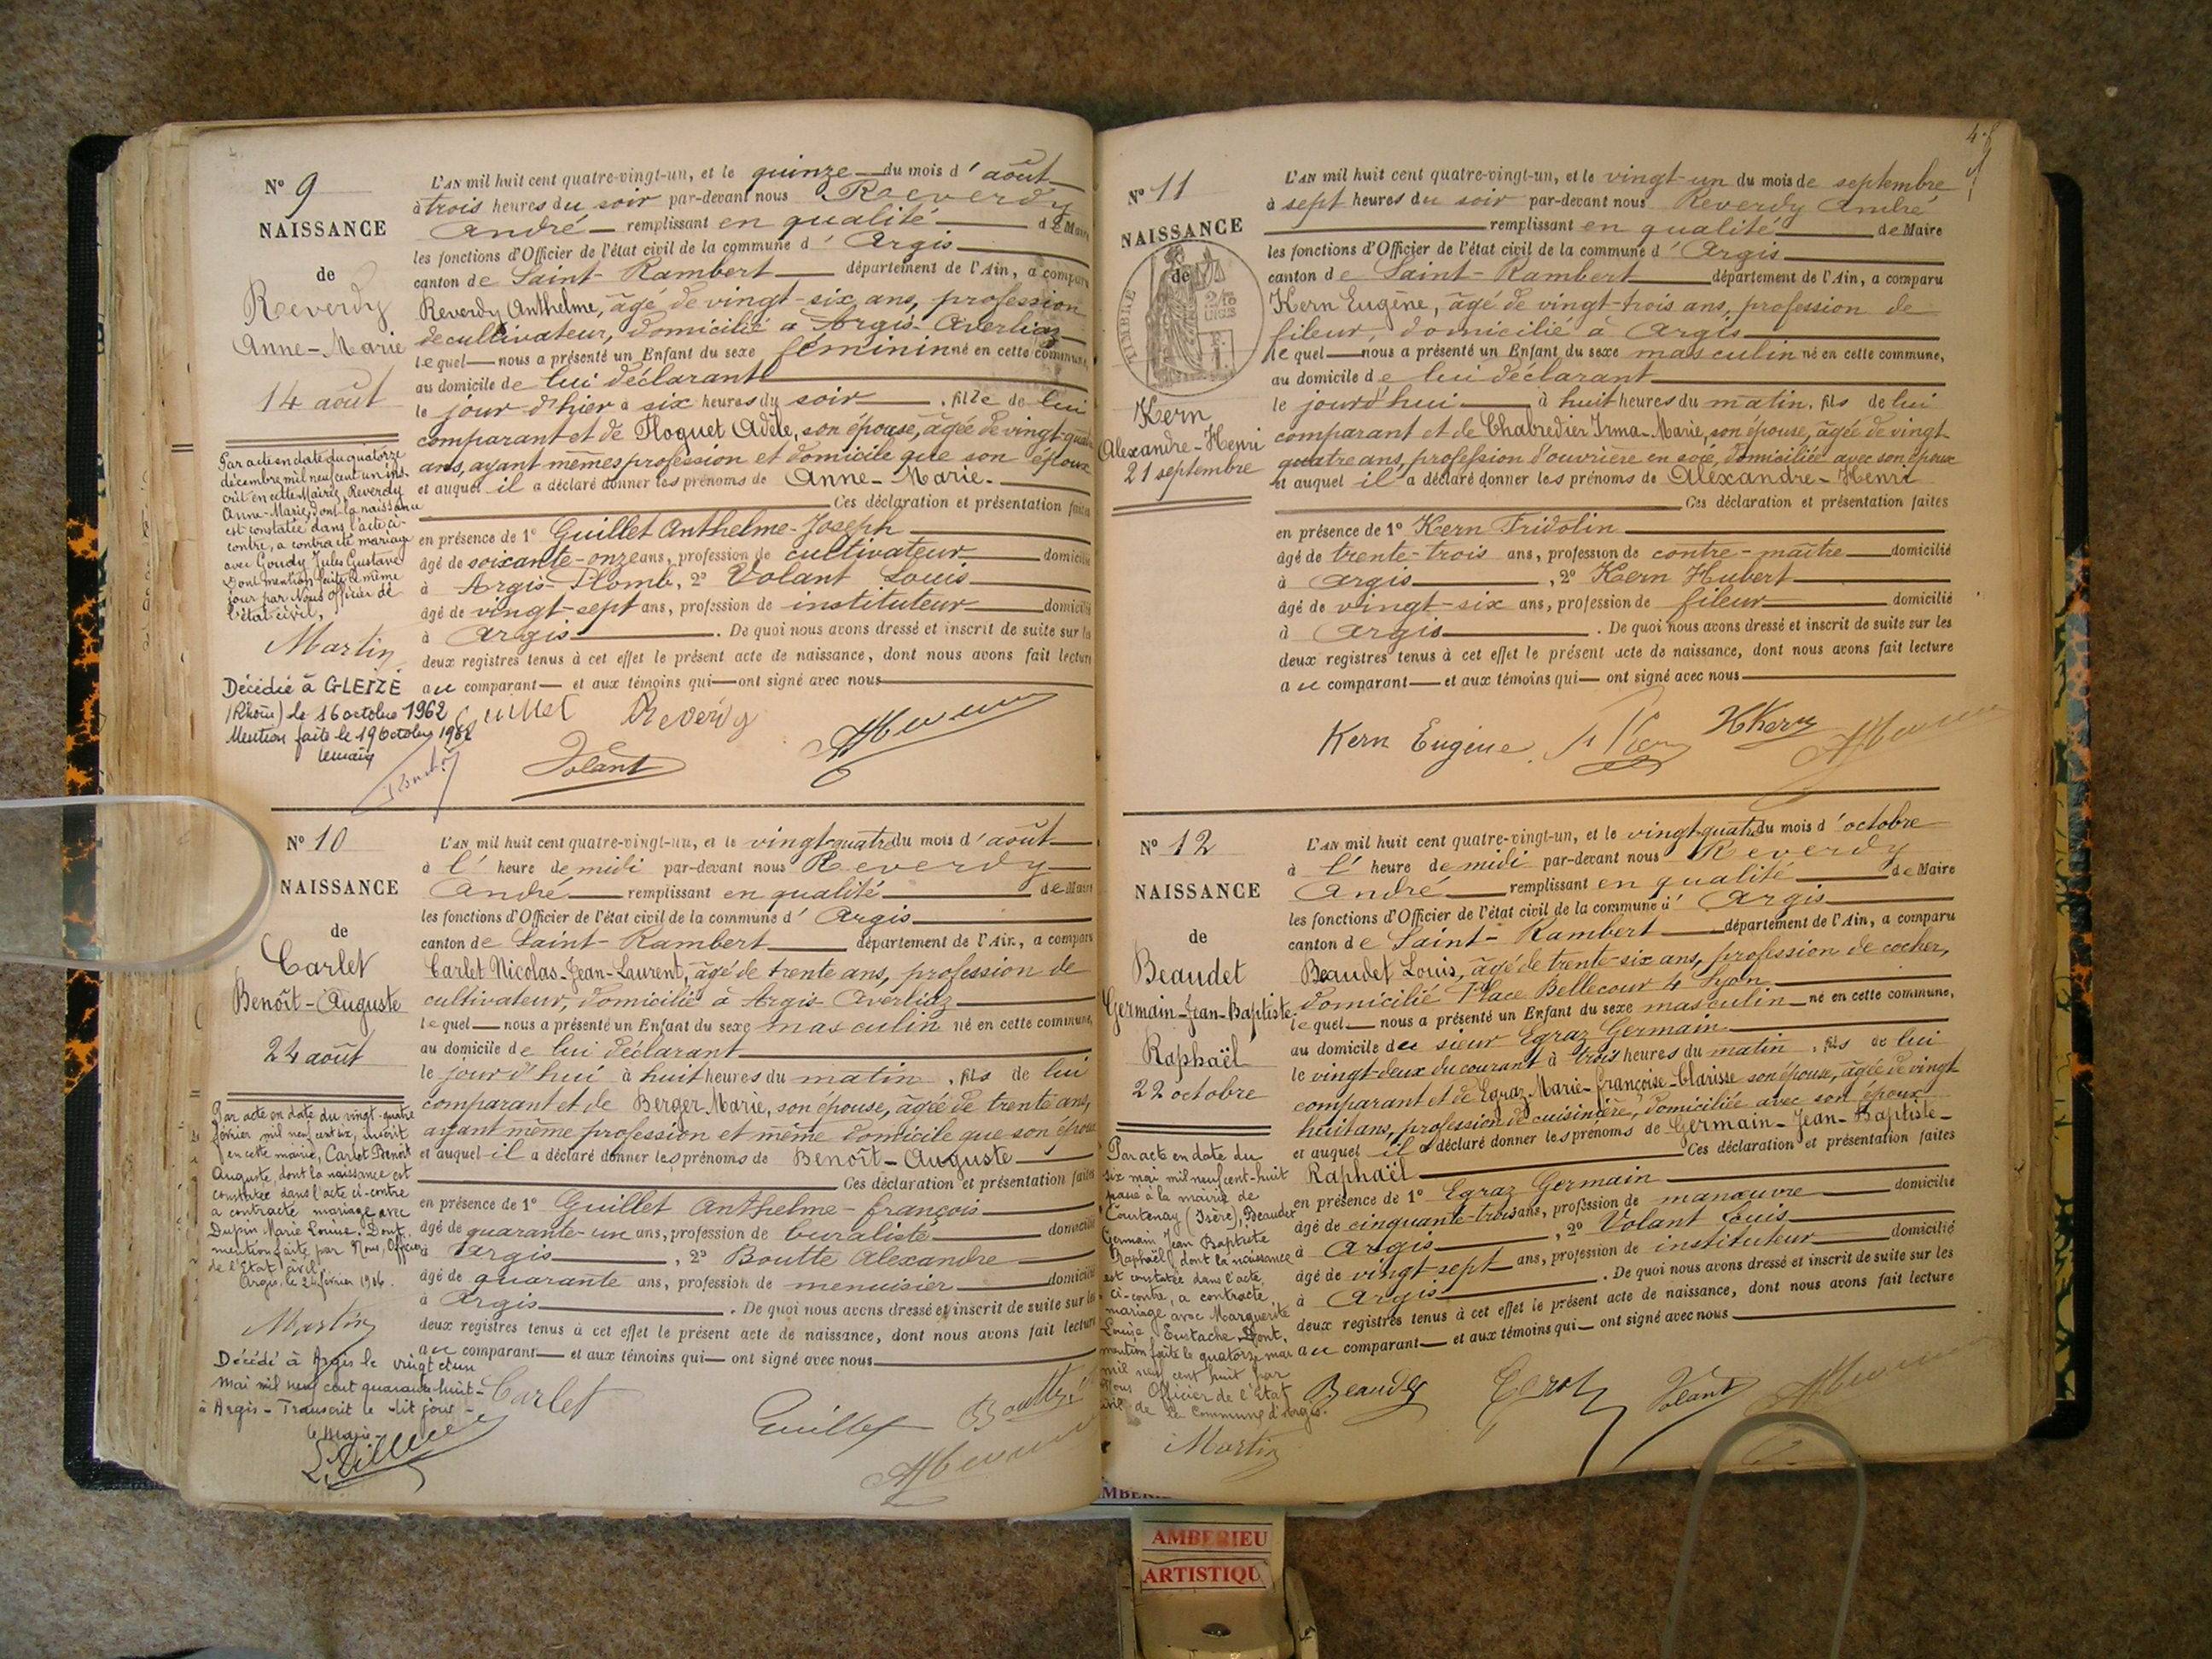 N° 9
NAISSANCE
de
Reverdy
Anne-Marie
14 août
Par acte en date du quatorze
décembre mil neuf cent un ins-
crit en cette Mairie, Reverdy
Anne-Marie, dont la naissance
est constatée dans l'acte ci-
contre, a contracté mariage
avec Goudy Jules Gustave
Dont mention faite le même
jour par Nous Officier de
l'état civil,
Martin
Décédée à GLEIZE
(Rhône) le 16 octobre 1962
Mention faite le 19 octobre 1962
L'AN mil huit cent quatre-vingt-un, et le quinze du mois d'août
à trois heures du soir par-devant nous Reverdy
André remplissant en qualité de Maire
les fonctions d'Officier de l'état civil de la commune d'Argis
canton de Saint-Rambert département de l'Ain, a comparu
Reverdy Anthelme, âgé de vingt-six ans, profession
de cultivateur, domicilié à Argis-Averliaz
lequel nous a présenté un Enfant du sexe féminin né en cette commune,
au domicile de lui déclarant
le jour d'hier à six heures du soir, fille de lui
comparant et de Floquet Adèle, son épouse, âgée de vingt-quatre
ans, ayant mêmes profession et domicile que son époux
et auquel il a déclaré donner les prénoms de Anne-Marie.
Ces déclaration et présentation faites
en présence de 1° Guillet Anthelme-Joseph
âgé de soixante-onze ans, profession de cultivateur domicilié
à Argis-Plomb, 2° Volant Louis
âgé de vingt-sept ans, profession de instituteur domicilié
à Argis. De quoi nous avons dressé et inscrit de suite sur les
deux registres tenus à cet effet le présent acte de naissance, dont nous avons fait lecture
au comparant et aux témoins qui ont signé avec nous
Guillet Reverdy
Volant
N° 10
NAISSANCE
de
Carlet
Benoît-Auguste
24 août
Par acte en date du vingt-quatre
février mil neuf cent six, inscrit
en cette mairie, Carlet Benoit
Auguste, dont la naissance est
constatée dans l'acte ci-contre
a contracté mariage avec
Dupin Marie Louise. Dont
mention faite par Nous, Officier
de l'Etat civil,
Argis, le 24 février 1906.
Martin
Décédé à Argis le vingt et un
mai mil neuf cent quarante huit
à Argis - Transcrit le dit jour -
le Maire
L'AN mil huit cent quatre-vingt-un, et le vingt-quatre du mois d'août
à l'heure de midi par-devant nous Reverdy
André remplissant en qualité de Maire
les fonctions d'Officier de l'état civil de la commune d'Argis
canton de Saint-Rambert département de l'Ain, a comparu
Carlet Nicolas-Jean-Laurent, âgé de trente ans, profession de
cultivateur, domicilié à Argis-Averliaz
lequel nous a présenté un Enfant du sexe masculin né en cette commune,
au domicile de lui déclarant
le jourd'hui à huit heures du matin, fils de lui
comparant et de Berger Marie, son épouse, âgée de trente ans,
ayant même profession et même domicile que son époux
et auquel il a déclaré donner les prénoms de Benoît-Auguste
Ces déclaration et présentation faites
en présence de 1° Guillet Anthelme-François
âgé de quarante-un ans, profession de buraliste domicilié
à Argis, 2° Boutte Alexandre
âgé de quarante ans, profession de menuisier domicilié
à Argis. De quoi nous avons dressé et inscrit de suite sur les
deux registres tenus à cet effet le présent acte de naissance, dont nous avons fait lecture
au comparant et aux témoins qui ont signé avec nous
Carlet Guillet Boutte
N° 11
NAISSANCE
de
TIMBRE
Kern
Alexandre-Henri
21 septembre
L'AN mil huit cent quatre-vingt-un, et le vingt-un du mois de septembre
à sept heures du soir par-devant nous Reverdy André
remplissant en qualité de Maire
les fonctions d'Officier de l'état civil de la commune d'Argis
canton de Saint-Rambert département de l'Ain, a comparu
Kern Eugène, âgé de vingt-trois ans, profession de
fileur, domicilié à Argis
lequel nous a présenté un Enfant du sexe masculin né en cette commune,
au domicile de lui déclarant
le jourd'hui à huit heures du matin, fils de lui
comparant et de Chabredier Irma-Marie, son épouse, âgée de vingt-
quatre ans, profession d'ouvrière en soie, domiciliée avec son époux
et auquel il a déclaré donner les prénoms de Alexandre-Henri
Ces déclaration et présentation faites
en présence de 1° Kern Fridolin
âgé de trente-trois ans, profession de contre-maître domicilié
à Argis, 2° Kern Hubert
âgé de vingt-six ans, profession de fileur domicilié
à Argis. De quoi nous avons dressé et inscrit de suite sur les
deux registres tenus à cet effet le présent acte de naissance, dont nous avons fait lecture
au comparant et aux témoins qui ont signé avec nous
Kern Eugène HKern
N° 12
NAISSANCE
de
Beaudet
Germain-Jean-Baptiste
Raphaël
22 octobre
Par acte en date du
six mai mil neuf cent-huit
passé à la mairie de
Courtenay (Isère), Beaudet
Germain Jean Baptiste
Raphaël, dont la naissance
est constatée dans l'acte
ci-contre, a contracté
mariage avec Marguerite
Louise Eustache. Dont
mention faite le quatorze mai
mil neuf cent huit par
Nous Officier de l'Etat
civil de la Commune d'Argis.
Martin
L'AN mil huit cent quatre-vingt-un, et le vingt-quatre du mois d'octobre
à l'heure de midi par-devant nous Reverdy
André remplissant en qualité de Maire
les fonctions d'Officier de l'état civil de la commune d'Argis
canton de Saint-Rambert département de l'Ain, a comparu
Beaudet Louis, âgé de trente-six ans, profession de cocher,
domicilié Place Bellecour 4 Lyon
lequel nous a présenté un Enfant du sexe masculin né en cette commune,
au domicile du sieur Egraz Germain
le vingt-deux du courant à trois heures du matin, fils de lui
comparant et de Egraz Marie-Françoise-Clarisse son épouse, âgée de vingt
huit ans, profession de cuisinière, domiciliée avec son époux
et auquel il a déclaré donner les prénoms de Germain-Jean-Baptiste-
Raphaël Ces déclaration et présentation faites
en présence de 1° Egraz Germain
âgé de cinquante-trois ans, profession de manœuvre domicilié
à Argis, 2° Volant Louis
âgé de vingt sept ans, profession de instituteur domicilié
à Argis. De quoi nous avons dressé et inscrit de suite sur les
deux registres tenus à cet effet le présent acte de naissance, dont nous avons fait lecture
au comparant et aux témoins qui ont signé avec nous
Volant
AMBERIEU
ARTISTIQU